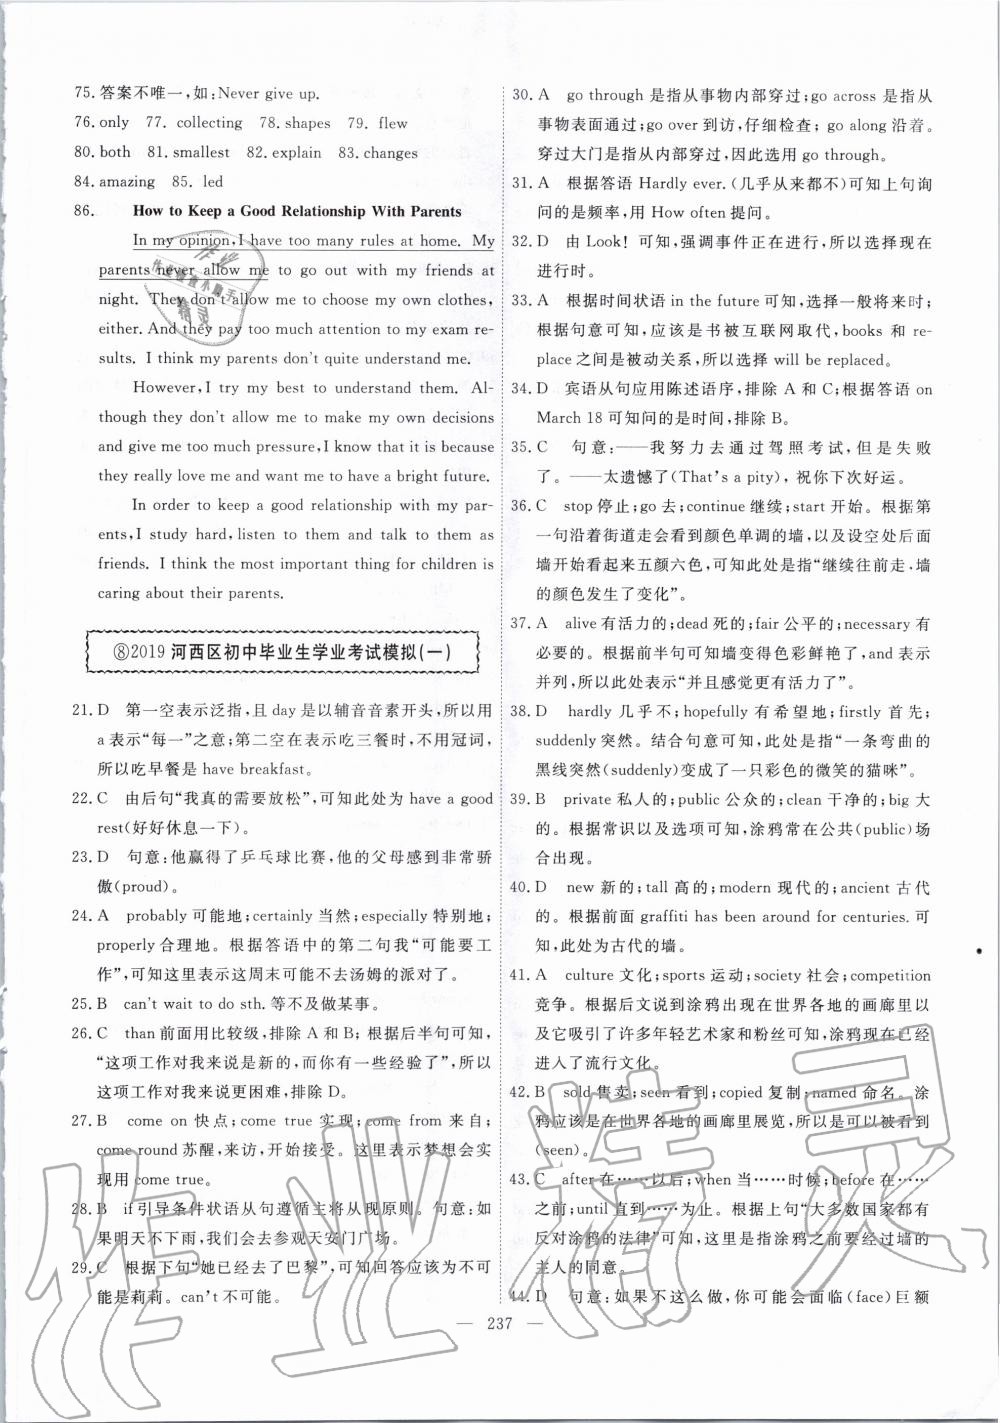 75. 答案不唯一,如:Never give up.
76. only 77. collecting 78. shapes 79. flew
80. both 81. smallest 82. explain 83. changes
84. amazing 85. led
86. How to Keep a Good Relationship With Parents
In my opinion, I have too many rules at home. My
parents never allow me to go out with my friends at
night. They don't allow me to choose my own clothes,
either. And they pay too much attention to my exam re-
sults. I think my parents don't quite understand me.
However, I try my best to understand them. Al-
though they don't allow me to make my own decisions
and give me too much pressure, I know that it is because
they really love me and want me to have a bright future.
In order to keep a good relationship with my par-
ents, I study hard, listen to them and talk to them as
friends. I think the most important thing for children is
caring about their parents.
⑧2019 河西区初中毕业生学业考试模拟(一)
21. D 第一空表示泛指,且 day 是以辅音音素开头,所以用
a 表示“每一”之意;第二空在表示吃三餐时,不用冠词,
所以吃早餐是 have breakfast。
22. C 由后句“我真的需要放松”,可知此处为 have a good
rest(好好休息一下)。
23. D 句意:他赢得了乒乓球比赛,他的父母感到非常骄
傲(proud)。
24. A probably 可能地;certainly 当然;especially 特别地;
properly 合理地。根据答语中的第二句我“可能要工
作”,可知这里表示这周末可能不去汤姆的派对了。
25. B can't wait to do sth. 等不及做某事。
26. C than 前面用比较级,排除 A 和 B;根据后半句可知,
“这项工作对我来说是新的,而你有一些经验了”,所以
这项工作对我来说更困难,排除 D。
27. B come on 快点;come true 实现;come from 来自;
come round 苏醒,来访,开始接受。这里表示梦想会实
现用 come true。
28. B if 引导条件状语从句遵循主将从现原则。句意:如
果明天不下雨,我们会去参观天安门广场。
29. C 根据下句“她已经去了巴黎”,可知回答应该为不可
能是莉莉。can't 不可能。
30. A go through 是指从事物内部穿过;go across 是指从
事物表面通过;go over 到访,仔细检查;go along 沿着。
穿过大门是指从内部穿过,因此选用 go through。
31. A 根据答语 Hardly ever.(几乎从来都不)可知上句询
问的是频率,用 How often 提问。
32. D 由 Look! 可知,强调事件正在进行,所以选择现在
进行时。
33. A 根据时间状语 in the future 可知,选择一般将来时;
根据句意可知,应该是书被互联网取代,books 和 re-
place 之间是被动关系,所以选择 will be replaced。
34. D 宾语从句应用陈述语序,排除 A 和 C;根据答语 on
March 18 可知问的是时间,排除 B。
35. C 句意:——我努力去通过驾照考试,但是失败
了。——太遗憾了(That's a pity),祝你下次好运。
36. C stop 停止;go 去;continue 继续;start 开始。根据第
一句沿着街道走会看到颜色单调的墙,以及设空处后面
墙开始看起来五颜六色,可知此处是指“继续往前走,墙
的颜色发生了变化”。
37. A alive 有活力的;dead 死的;fair 公平的;necessary 有
必要的。根据前半句可知墙变得色彩鲜艳了,and 表示
并列,所以此处表示“并且感觉更有活力了”。
38. D hardly 几乎不;hopefully 有希望地;firstly 首先;
suddenly 突然。结合句意可知,此处是指“一条弯曲的
黑线突然(suddenly)变成了一只彩色的微笑的猫咪”。
39. B private 私人的;public 公众的;clean 干净的;big 大
的。根据常识以及选项可知,涂鸦常在公共(public)场
合出现。
40. D new 新的;tall 高的;modern 现代的;ancient 古代
的。根据前面 graffiti has been around for centuries. 可
知,此处为古代的墙。
41. A culture 文化;sports 运动;society 社会;competition
竞争。根据后文说到涂鸦出现在世界各地的画廊里以
及它吸引了许多年轻艺术家和粉丝可知,涂鸦现在已经
进入了流行文化。
42. B sold 售卖;seen 看到;copied 复制;named 命名。涂
鸦应该是在世界各地的画廊里展览,所以是可以看到
(seen)。
43. C after 在……以后;when 当……时候;before 在……
之前;until 直到……为止。根据上句“大多数国家都有
反对涂鸦的法律”可知,这里是指涂鸦之前要经过墙的
主人的同意。
44. D 句意:如果不这么做,你可能会面临(face)巨额
— 237 —
作业精灵